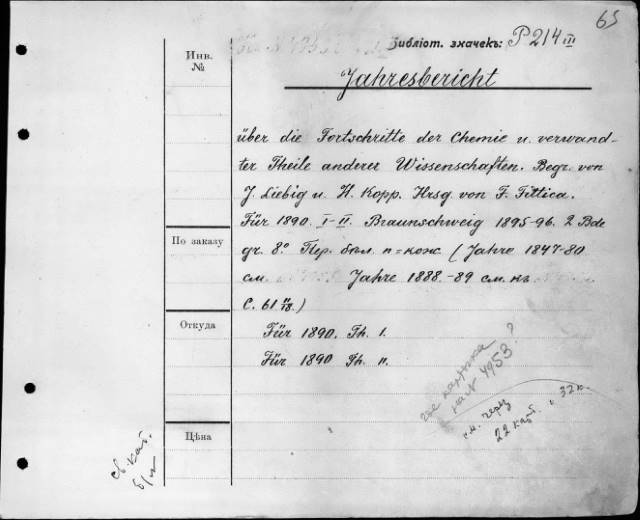 65
Библіот. значекъ: P 214 III
Инв.
№
Jahresbericht
über die Fortschritte der Chemie u. verwand-
ter Theile anderer Wissenschaften. Begr. von
J. Liebig u. H. Kopp. Hrsg von F. Fittica.
Für 1890. I-II. Braunschweig 1895-96. 2 Bde
По заказу
gr. 8°. Пер. бил. п=кож (Jahre 1847-80
см. Jahre 1888.-89 см. къ
C. 61 )
Откуда
Für 1890. Th. I.
Für 1890 Th. II.
где карточка ?
на № 4953
см. черт
22 каб. 32 к.
Цѣна
св. кат.
б/и